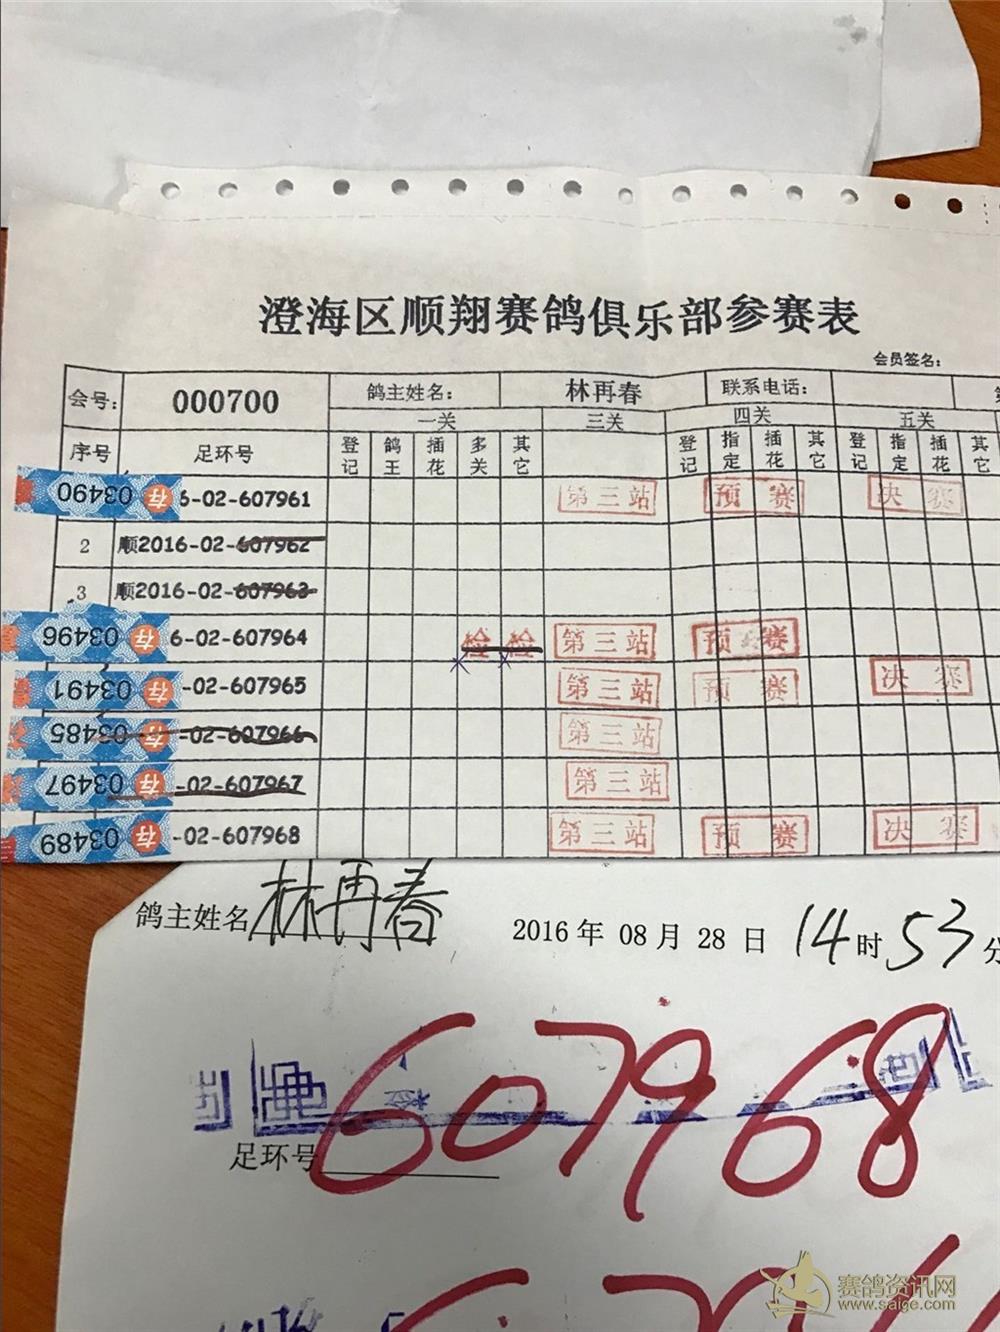 澄海区顺翔赛鸽俱乐部参赛表
会员签名：
会号： 000700 鸽主姓名： 林再春 联系电话：
一关 三关 四关 五关
序号 足环号 登记 鸽王 插花 多关 其它 登记 指定 插花 其它 登记 指定 插花 其它
03490 存 6-02-607961 第三站 预赛 决赛
2 顺2016-02-607962
3 顺2016-02-607963
03496 存 6-02-607964 检 检 第三站 预赛
03491 存 -02-607965 第三站 预赛 决赛
03485 存 -02-607966 第三站
03497 存 -02-607967 第三站
03489 存 -02-607968 第三站 预赛 决赛
鸽主姓名 林再春 2016年 08月 28日 14时 53分
607968
足环号
赛鸽资讯网
www.saige.com